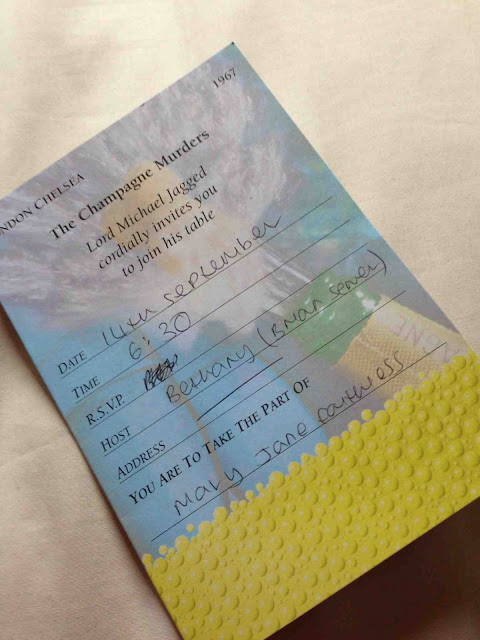 NDON CHELSEA 1967
The Champagne Murders
Lord Michael Jagged
cordially invites you
to join his table
DATE 14th september
TIME 6:30
R.S.V.P. Bethany (Brian Server)
HOST
ADDRESS
YOU ARE TO TAKE THE PART OF
Mary Jane Faithless
GNE